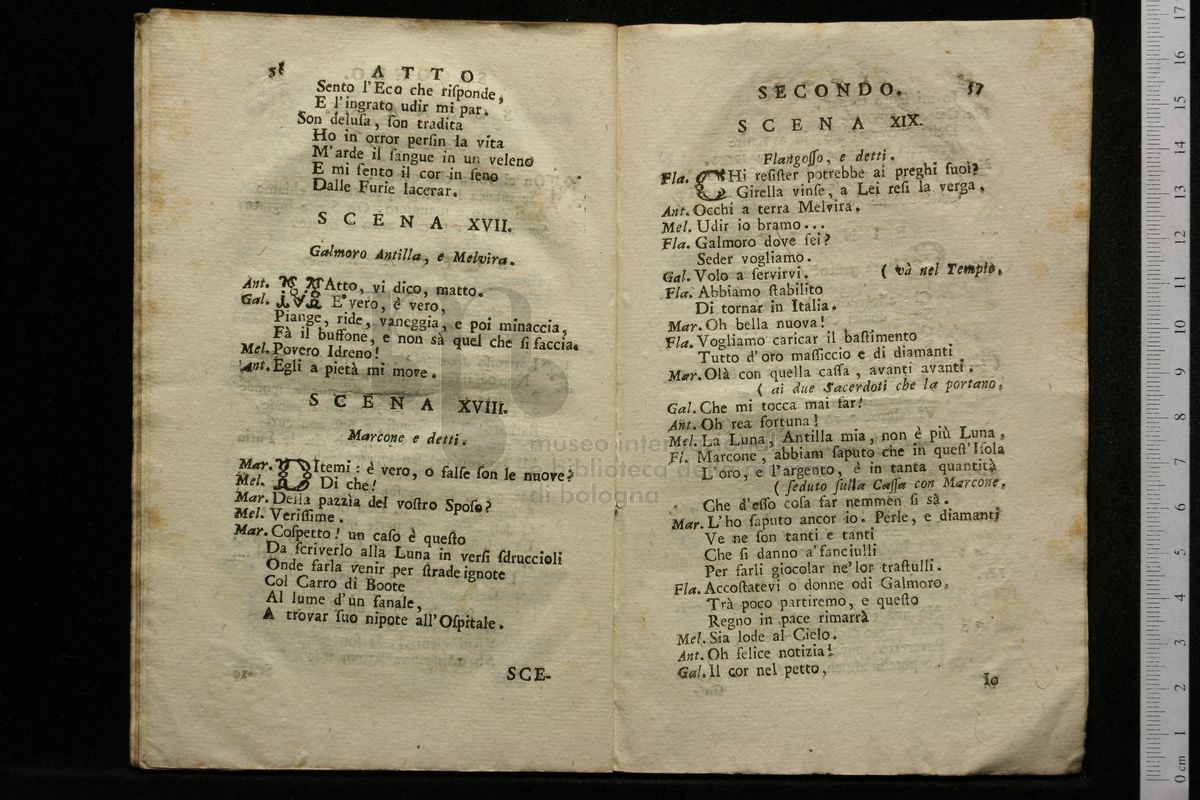 56 ATTO
Sento l'Eco che risponde,
E l'ingrato udir mi par.
Son delusa, son tradita
Ho in orror persin la vita
M'arde il sangue in un veleno
E mi sento il cor in seno
Dalle Furie lacerar.
SCENA XVII.
Galmoro Antilla, e Melvira.
Ant. MAtto, vi dico, matto.
Gal. E' vero, è vero,
Piange, ride, vaneggia, e poi minaccia,
Fà il buffone, e non sà quel che si faccia.
Mel. Povero Idreno!
Ant. Egli a pietà mi move.
SCENA XVIII.
Marcone e detti.
Mar. DItemi: è vero, o false son le nuove?
Mel. Di che!
Mar. Della pazzia del vostro Sposo?
Mel. Verissime.
Mar. Cospetto! un caso è questo
Da scriverlo alla Luna in versi sdruccioli
Onde farla venir per strade ignote
Col Carro di Boote
Al lume d'un fanale,
A trovar suo nipote all'Ospitale.
SCE-
SECONDO. 57
SCENA XIX.
Flangosso, e detti.
Fla. CHi resister potrebbe ai preghi suoi?
Girella vinse, a Lei resi la verga.
Ant. Occhi a terra Melvira.
Mel. Udir io bramo...
Fla. Galmoro dove sei?
Seder vogliamo.
Gal. Volo a servirvi. ( và nel Tempio.
Fla. Abbiamo stabilito
Di tornar in Italia.
Mar. Oh bella nuova!
Fla. Vogliamo caricar il bastimento
Tutto d'oro massiccio e di diamanti.
Mar. Olà con quella cassa, avanti avanti.
( ai due Sacerdoti che la portano.
Gal. Che mi tocca mai far!
Ant. Oh rea fortuna!
Mel. La Luna, Antilla mia, non è più Luna.
Fl. Marcone, abbiam saputo che in quest'Isola
L'oro, e l'argento, è in tanta quantità
( seduto sulla Cassa con Marcone.
Che d'esso cosa far nemmen si sà.
Mar. L'ho saputo ancor io. Perle, e diamanti
Ve ne son tanti e tanti
Che si danno a' fanciulli
Per farli giocolar ne' lor trastulli.
Fla. Accostatevi o donne odi Galmoro.
Trà poco partiremo, e questo
Regno in pace rimarrà
Mel. Sia lode al Cielo.
Ant. Oh felice notizia!
Gal. Il cor nel petto,
Io
museo inter
biblioteca de
di bologna
0 cm 1 2 3 4 5 6 7 8 9 10 11 12 13 14 15 16 17